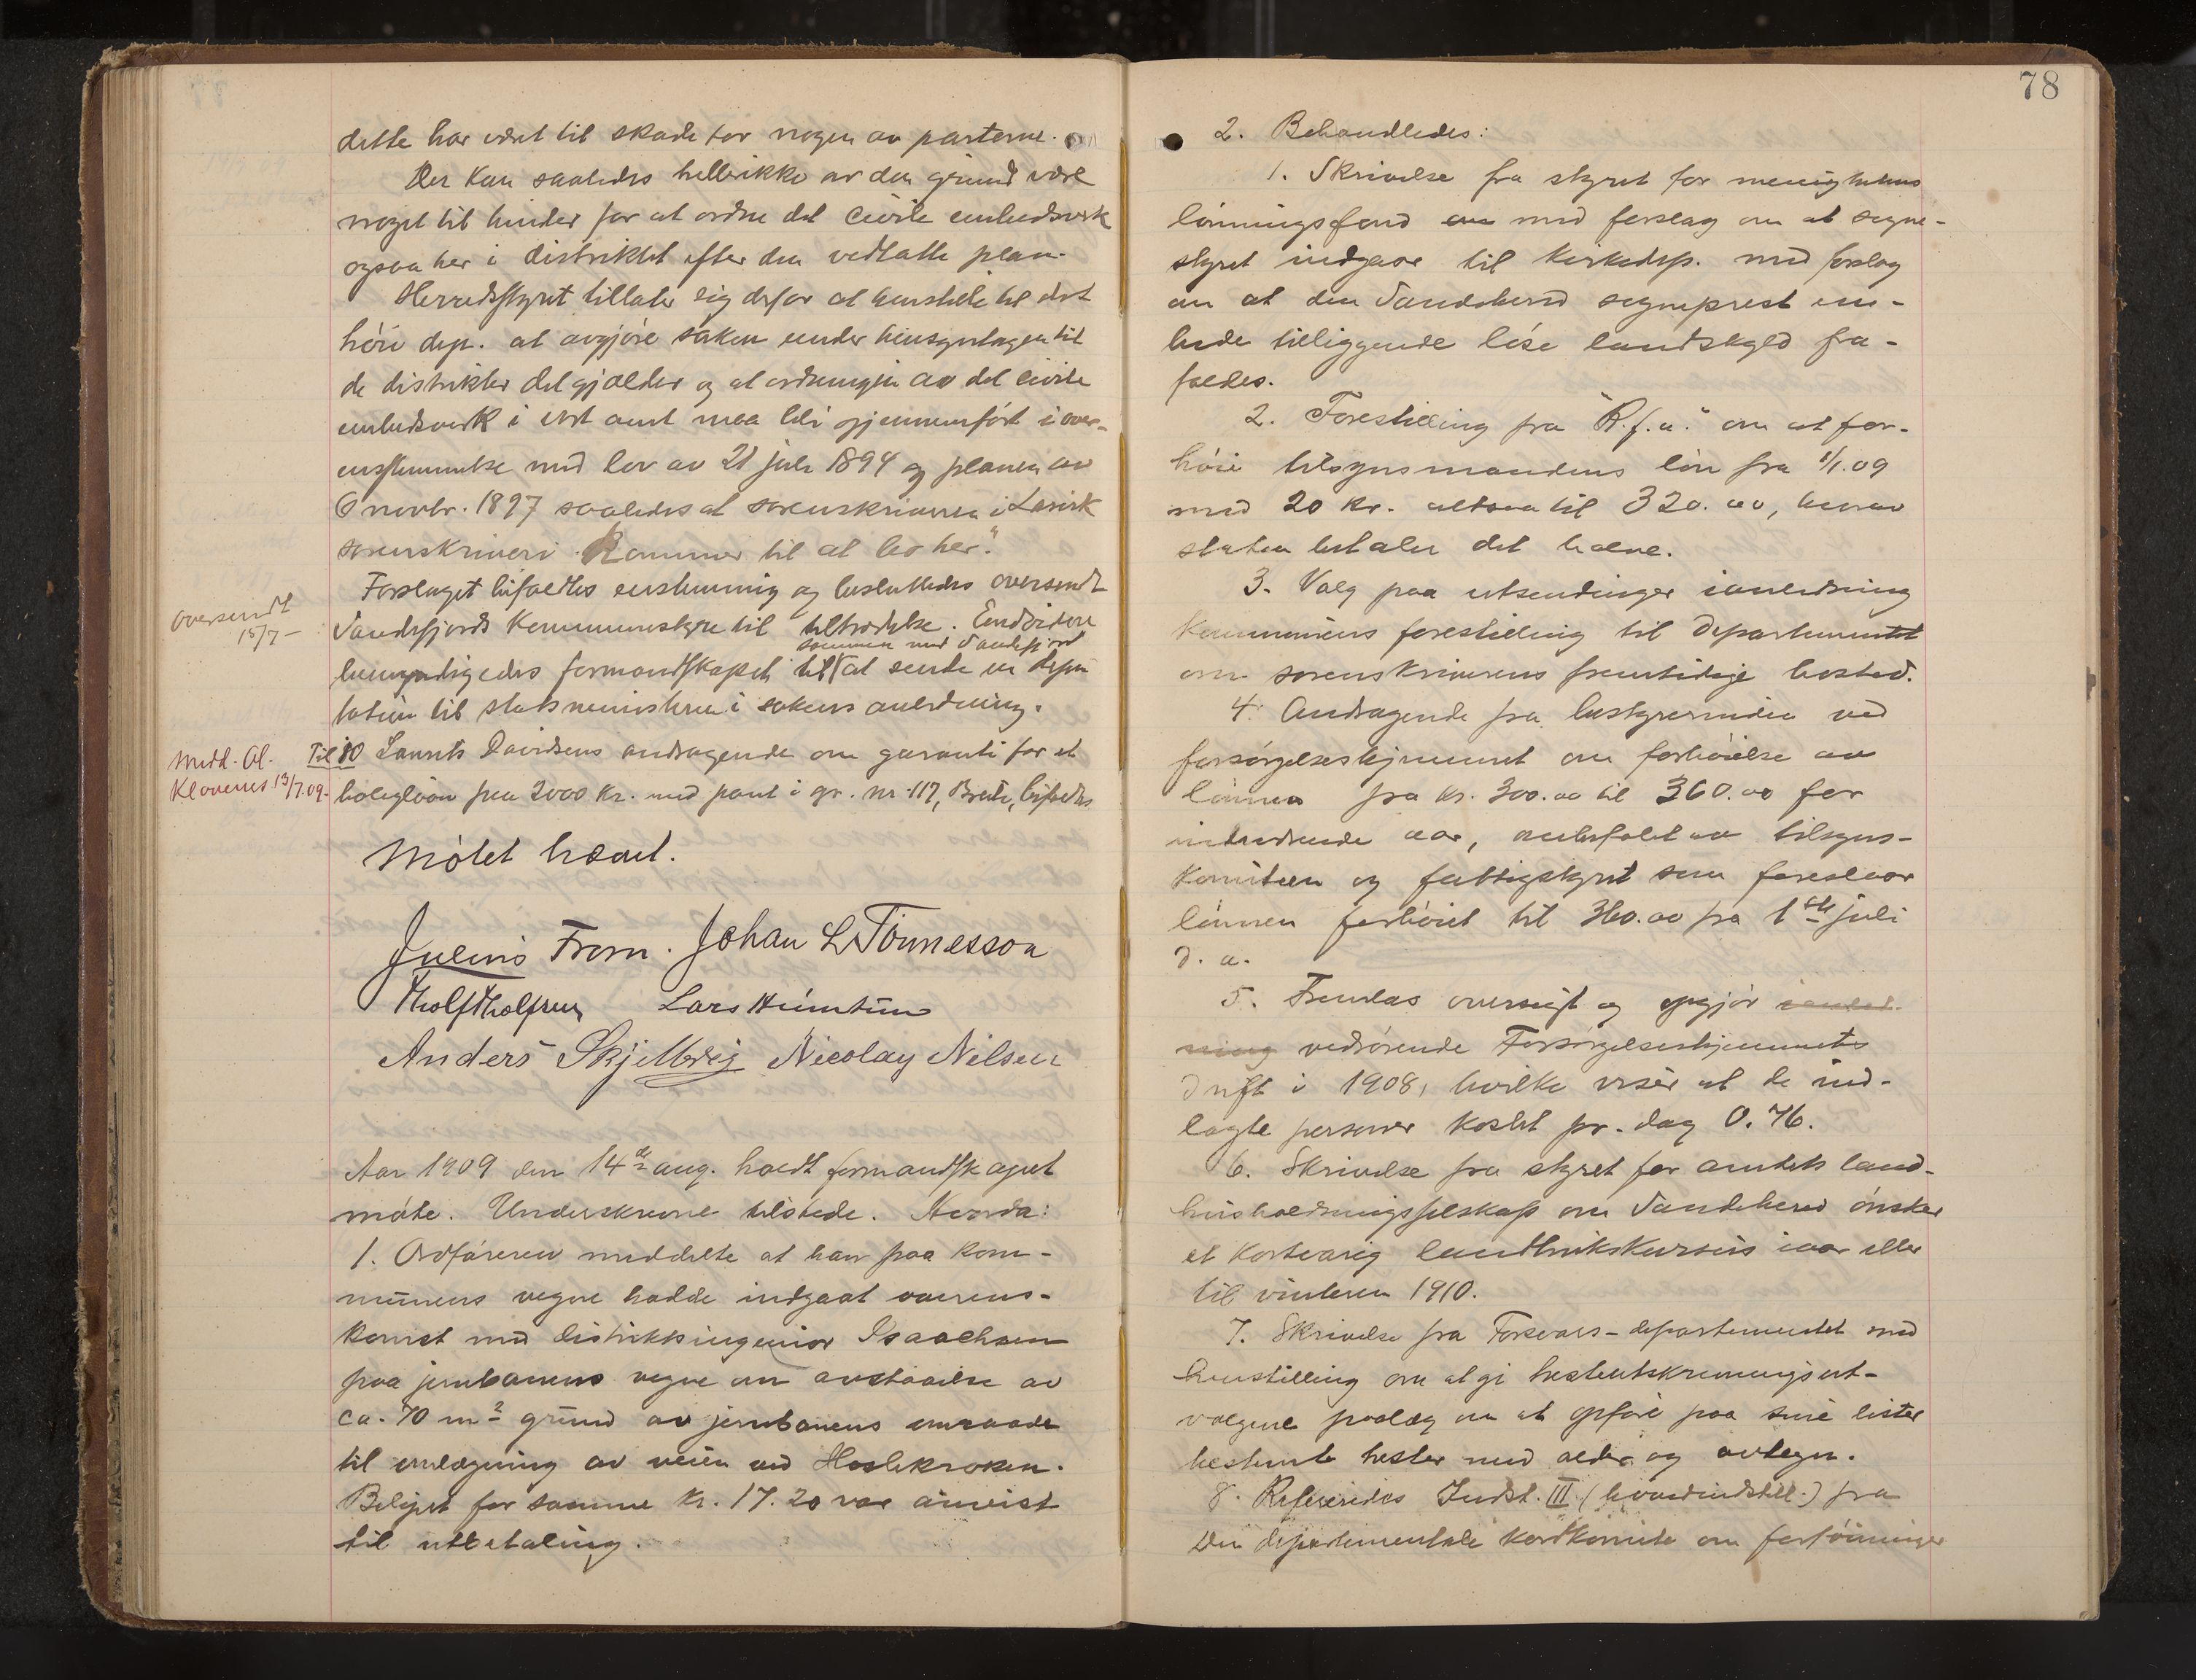 dette har været til skade for nogen av parterne.
Der kan saaledes hellerikke av den grund være
noget til hinder for at ordne det civile embedsverk
ogsaa her i distriktet efter den vedtatte plan.
Herredsstyret tillater sig derfor at henstille til det
høie dep. at avgjøre saken under hensyntagen til
de distrikter det gjælder og at ordningen av det civile
embedsverk i vort amt maa bli gjennemført i over-
ensstemmelse med lov av 21 juli 1894 og planen av
6 novbr. 1897 saaledes at sorenskriveren i Larvik
sorenskriveri kommer til at bo her."
Forslaget bifaldtes enstemmig og besluttedes oversendt
oversendt
15/7 -
Sandefjords Kommunestyre til tiltrædelse. Endvidere
sammen med Sandefjord
bemyndigedes formandskapet til at sende en depu
tation til statsministeren i sakens anledning.
Medd. Ol.
Klavenes 13/7.09.
Til 10 Laurits Davidsens andragende om garanti for et
boliglaan paa 2000 kr. med pant i gr. nr. 117, Breili, bifaldtes
Møtet hævet.
Julius From. Johan L Tönnesson
Tholf Tholfsen Lars Himtun
Anders Skjelbrei Nicolay Nilsen
Aar 1909 den 14de aug. holdt formandskapet
møte. Underskrevne tilstede. Hvorda:
1. Ordføreren meddelte at han paa kom-
munens vegne hadde indgaat overens-
komst med distriktsingeniør Isaachsen
paa jernbanens vegne om avstaaelse av
ca. 70 m2 grund av jernbanens omraade
til omlægning av veien ved Haslekroken.
Beløpet for samme kr. 17.20 var anvist
til utbetaling.
78
2. Behandledes:
1. Skrivelse fra styret for menighetens
lønningsfond om med forslag om at sogne-
styret indgaar til Kirkedep. med forslag
om at den Sandeherred sogneprest em-
bede tilliggende løse landskyld fra-
faldes.
2. Forestilling fra "R.f.a." om at for-
høie tilsynsmandens løn fra 1/1.09
med 20 kr. altsaa til 320.00, hvorav
staten betaler det halve.
3. Valg paa utsendinger i anledning
Kommunens forestilling til Departementet
om sorenskriverens fremtidige bosted.
4. Andragende fra bestyrerinden ved
forsørgelseshjemmet om forhøielse av
lønnen fra kr. 300.00 til 360.00 for
indeværende aar, anbefalet av tilsyns-
komiteen og fattigstyret som foreslaar
lønnen forhøiet til 360.00 fra 1ste juli
d. a.
5. Fremlas oversigt og opgjør ianled-
ning vedrørende Forsørgelseshjemmets
drift i 1908, hvilke viser at de ind-
lagte personer kostet pr. dag 0.76.
6. Skrivelse fra styret for amtets land-
husholdningsselskap om Sandeherred ønsker
et kortvarig landbrukskursus iaar eller
til vinteren 1910.
7. Skrivelse fra Forsvars-departementet med
henstilling om at gi hesteutskrivningsut-
valgene paalæg om at opføre paa sine lister
bestemte hester med alder og avtegn.
8. Refereredes Indst. III (hovedindstill.) fra
Den departementale komite om forføininger